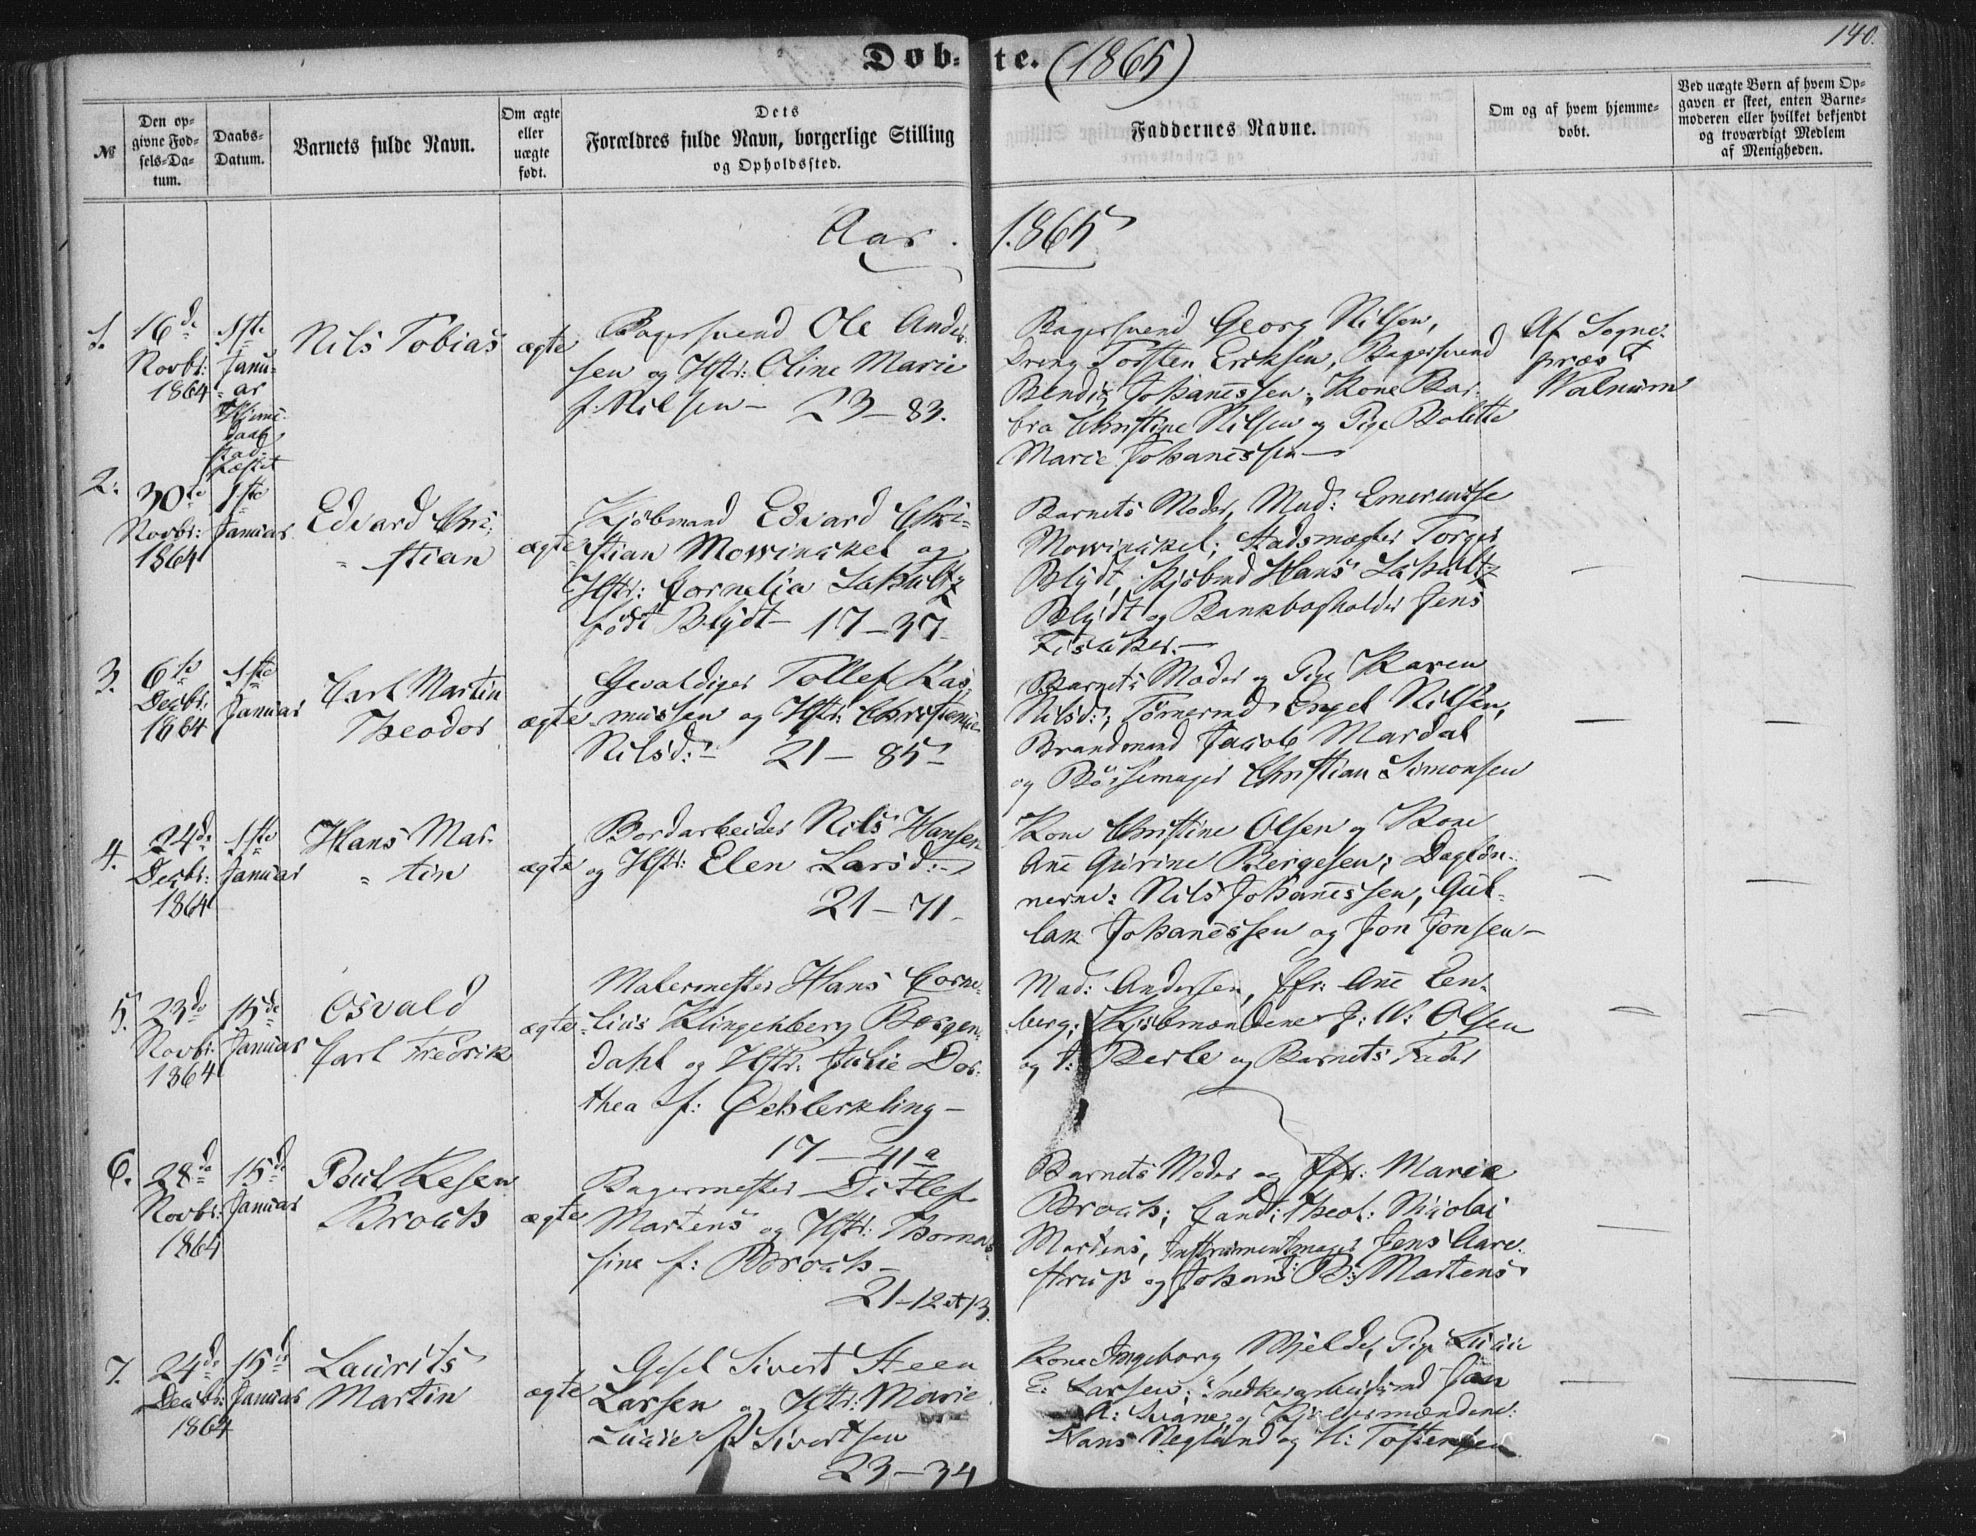 140.
Døb-te. (1865)
№
Den op-
givne Fød-
sels-Da-
tum.
Daabs-
Datum.
Barnets fulde Navn.
Om ægte
eller
uægte
født.
Dets
Forældres fulde Navn, borgerlige Stilling
og Opholdssted.
Faddernes Navne.
Om og af hvem hjemme-
døbt.
Ved uægte Børn af hvem Op-
gaven er skeet, enten Barne-
moderen eller hvilket bekjendt
og troværdigt Medlem
af Menigheden.
Aar. 1865
1.
16de
Novbr:
1864
1ste
Janu-
ar
Hjemme
daab
stad-
fæstet
Nils Tobias
ægte
Bagersvend Ole Ander-
sen og Hstr: Oline Marie
f: Nilsen – 23 – 83.
Bagersvend Georg Nilsen,
Dreng Torsten Eriksen, Bagersvend
Bendix Johanessen, Kone Bar-
bra Christine Nilsen og Pige Bolette
Marie Johanessen –
Af Sogne-
præst
Walnum
2.
30te
Novbr:
1864
1ste
Januar
Edvard Chri-
stian
ægte
Kjøbmand Edvard Chri-
stian Mowinckel og
Hstr: Cornelia Schultz
født Blydt – 17 – 37 –
Barnets Moder, Mad: Emerentse
Mowinckel; Stadsmægler Torger
Blydt, Kjøbmd Hans Schultz
Blydt og Bankbogholder Jens
Fischer. –
3.
6te
Decbr:
1864
1ste
Januar
Carl Martin
Theodor
ægte
Gevaldiger Tollef Ras-
mussen og Hstr: Christence
Nilsd: – 21 – 85 –
Barnets Moder og Pige Karen
Nilsd:; Tømermd Engel Nilsen,
Brandmand Jacob Mardal
og Bøssemager Christian Simonsen
4.
24de
Decbr:
1864
1ste
Januar
Hans Mar-
tin
ægte
Bordarbeider Nils Hansen
og Hstr: Elen Larsd: –
21 – 71 –
Kone Christine Olsen og Kone
Ane Gurine Bergesen; Dagløn-
nerne: Nils Johanessen, Gul-
lak Johanessen og Jon Jonsen –
5.
23de
Novbr:
1864
15de
Januar
Osvald
Carl Fredrik
ægte
Malermester Hans Corne-
lius Klingenberg Borgen-
dahl og Hstr: Julie Dor-
thea f: Oehlerkling –
17 – 41a
Mad: Andersen, Jfr: Ane Len-
berg; Kjøbmændene J: W: Olsen
og A: Berle og Barnets Fader
6.
28de
Novbr:
1864
15de
Januar
Poul Resen
Broch
ægte
Bagermester Ditlef
Martens og Hstr: Thoma-
sine f: Broch –
21 – 12 et 13.
Barnets Moder og Jfr: Marie
Broch; Cand: Theol: Nicolai
Martens, Instrumentmager Jens Aare-
strup og Johans B: Martens
7.
24de
Decbr:
1864
15de
Januar
Laurits
Martin
ægte
Gesel Sivert Steen
Larsen og Hstr: Marie
Lucie f: Sivertsen
23 – 34
Kone Ingeborg Mjelde, Pige Lucie
E: Larsen; Snedkerarbeidsmd Jan
A: Svane og Kjældermændene:
Hans Neglund og H: Tostensen